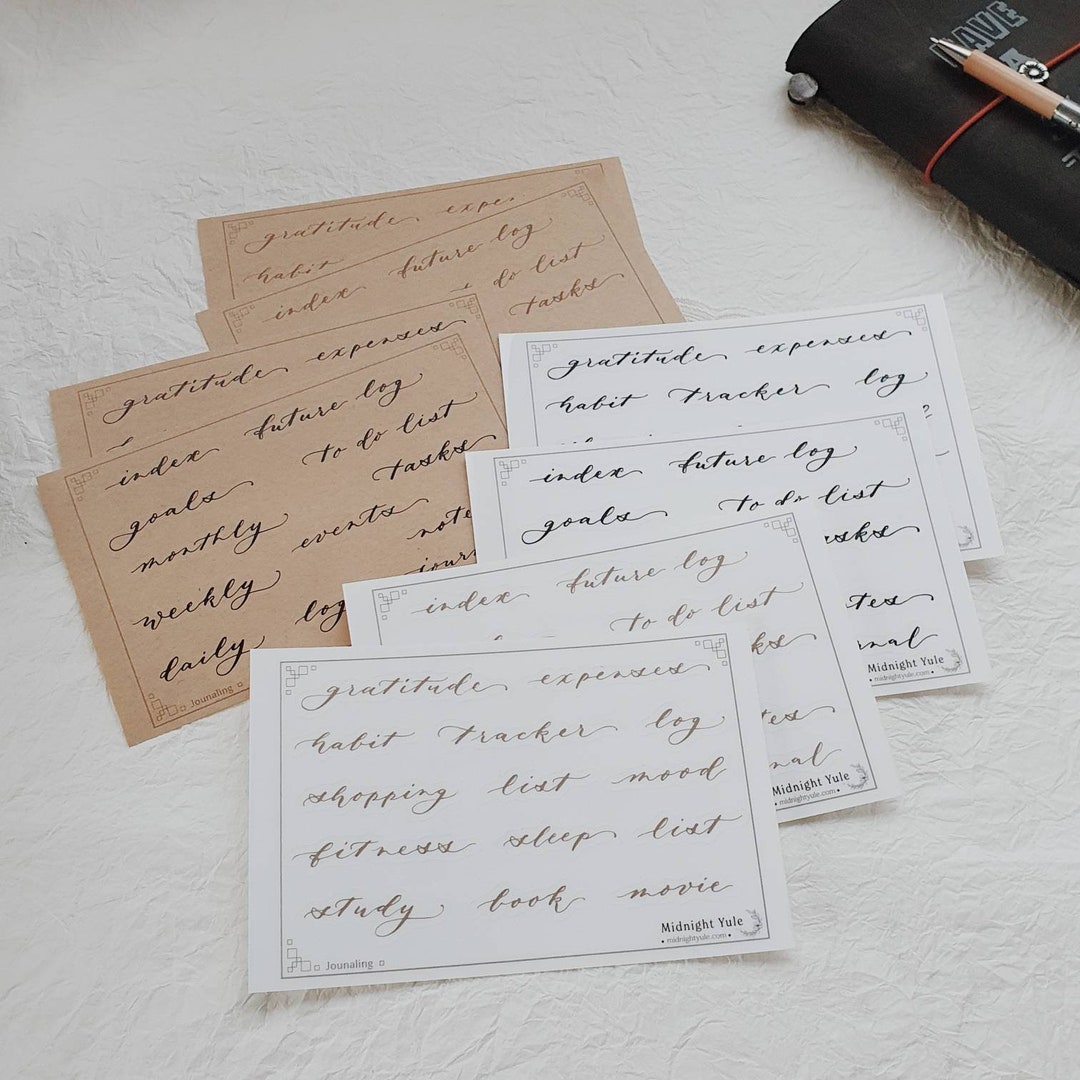 gratitude expe
habit
index future log
do list
tasks
gratitude expenses
index future log
goals to do list
monthly tasks
weekly events note
daily log jour
Jounaling
gratitude expenses
habit tracker log
index future log
goals to do list
asks
tes
nal
Midnight Yule
midnightyule.com
index future log
to do list
ks
tes
nal
Midnight Yule
• midnightyule.com •
gratitude expenses
habit tracker log
shopping list mood
fitness sleep list
study book movie
Midnight Yule
• midnightyule.com •
Jounaling